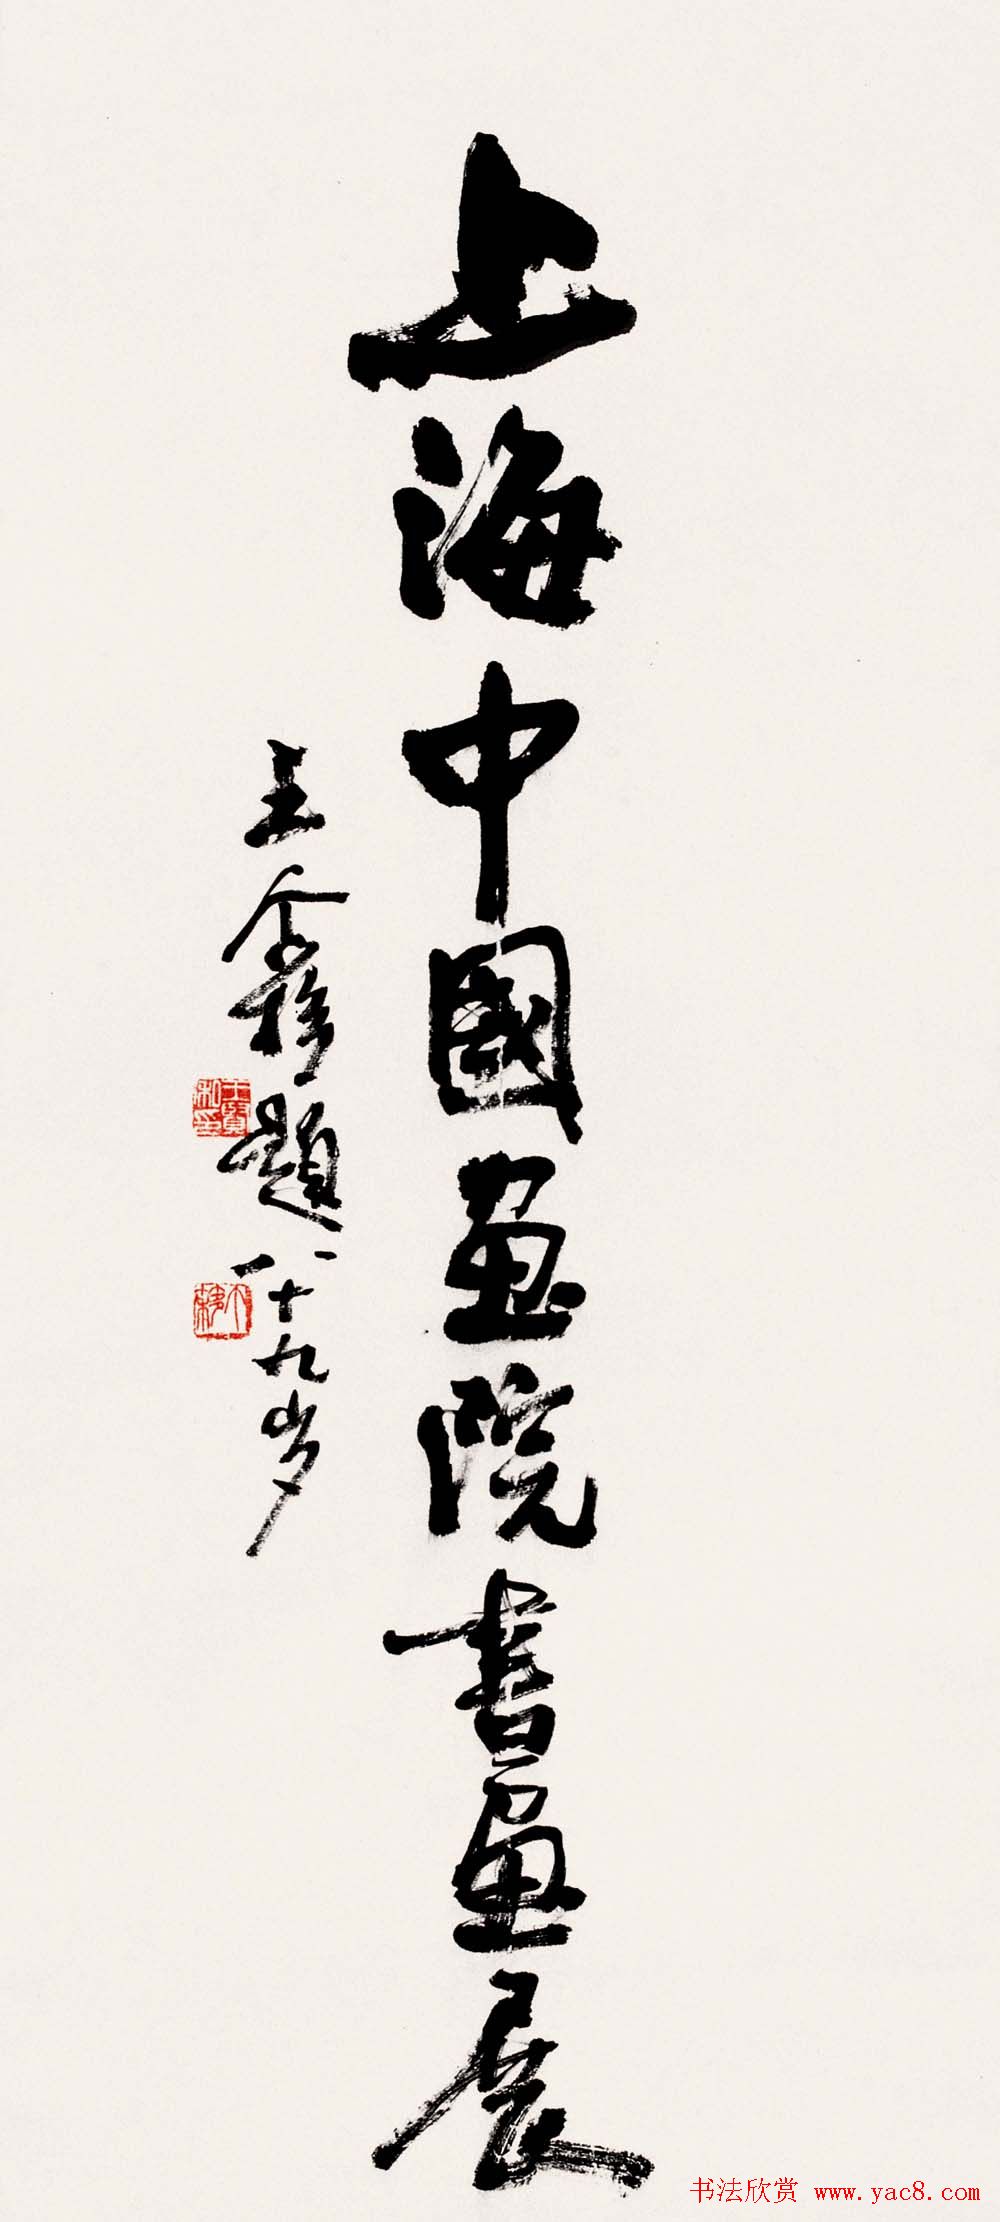 上海中國畫院書畫展
王个簃題 八十九岁
王賢私印
个簃
书法欣赏 www.yac8.com